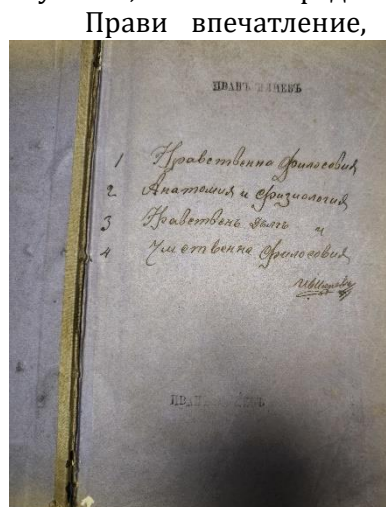 Прави впечатление,
ИВАНЪ
1 Нравственна философия
2 Анатомия и физиология
3 Нравственъ дългъ и
4 Умственна философия